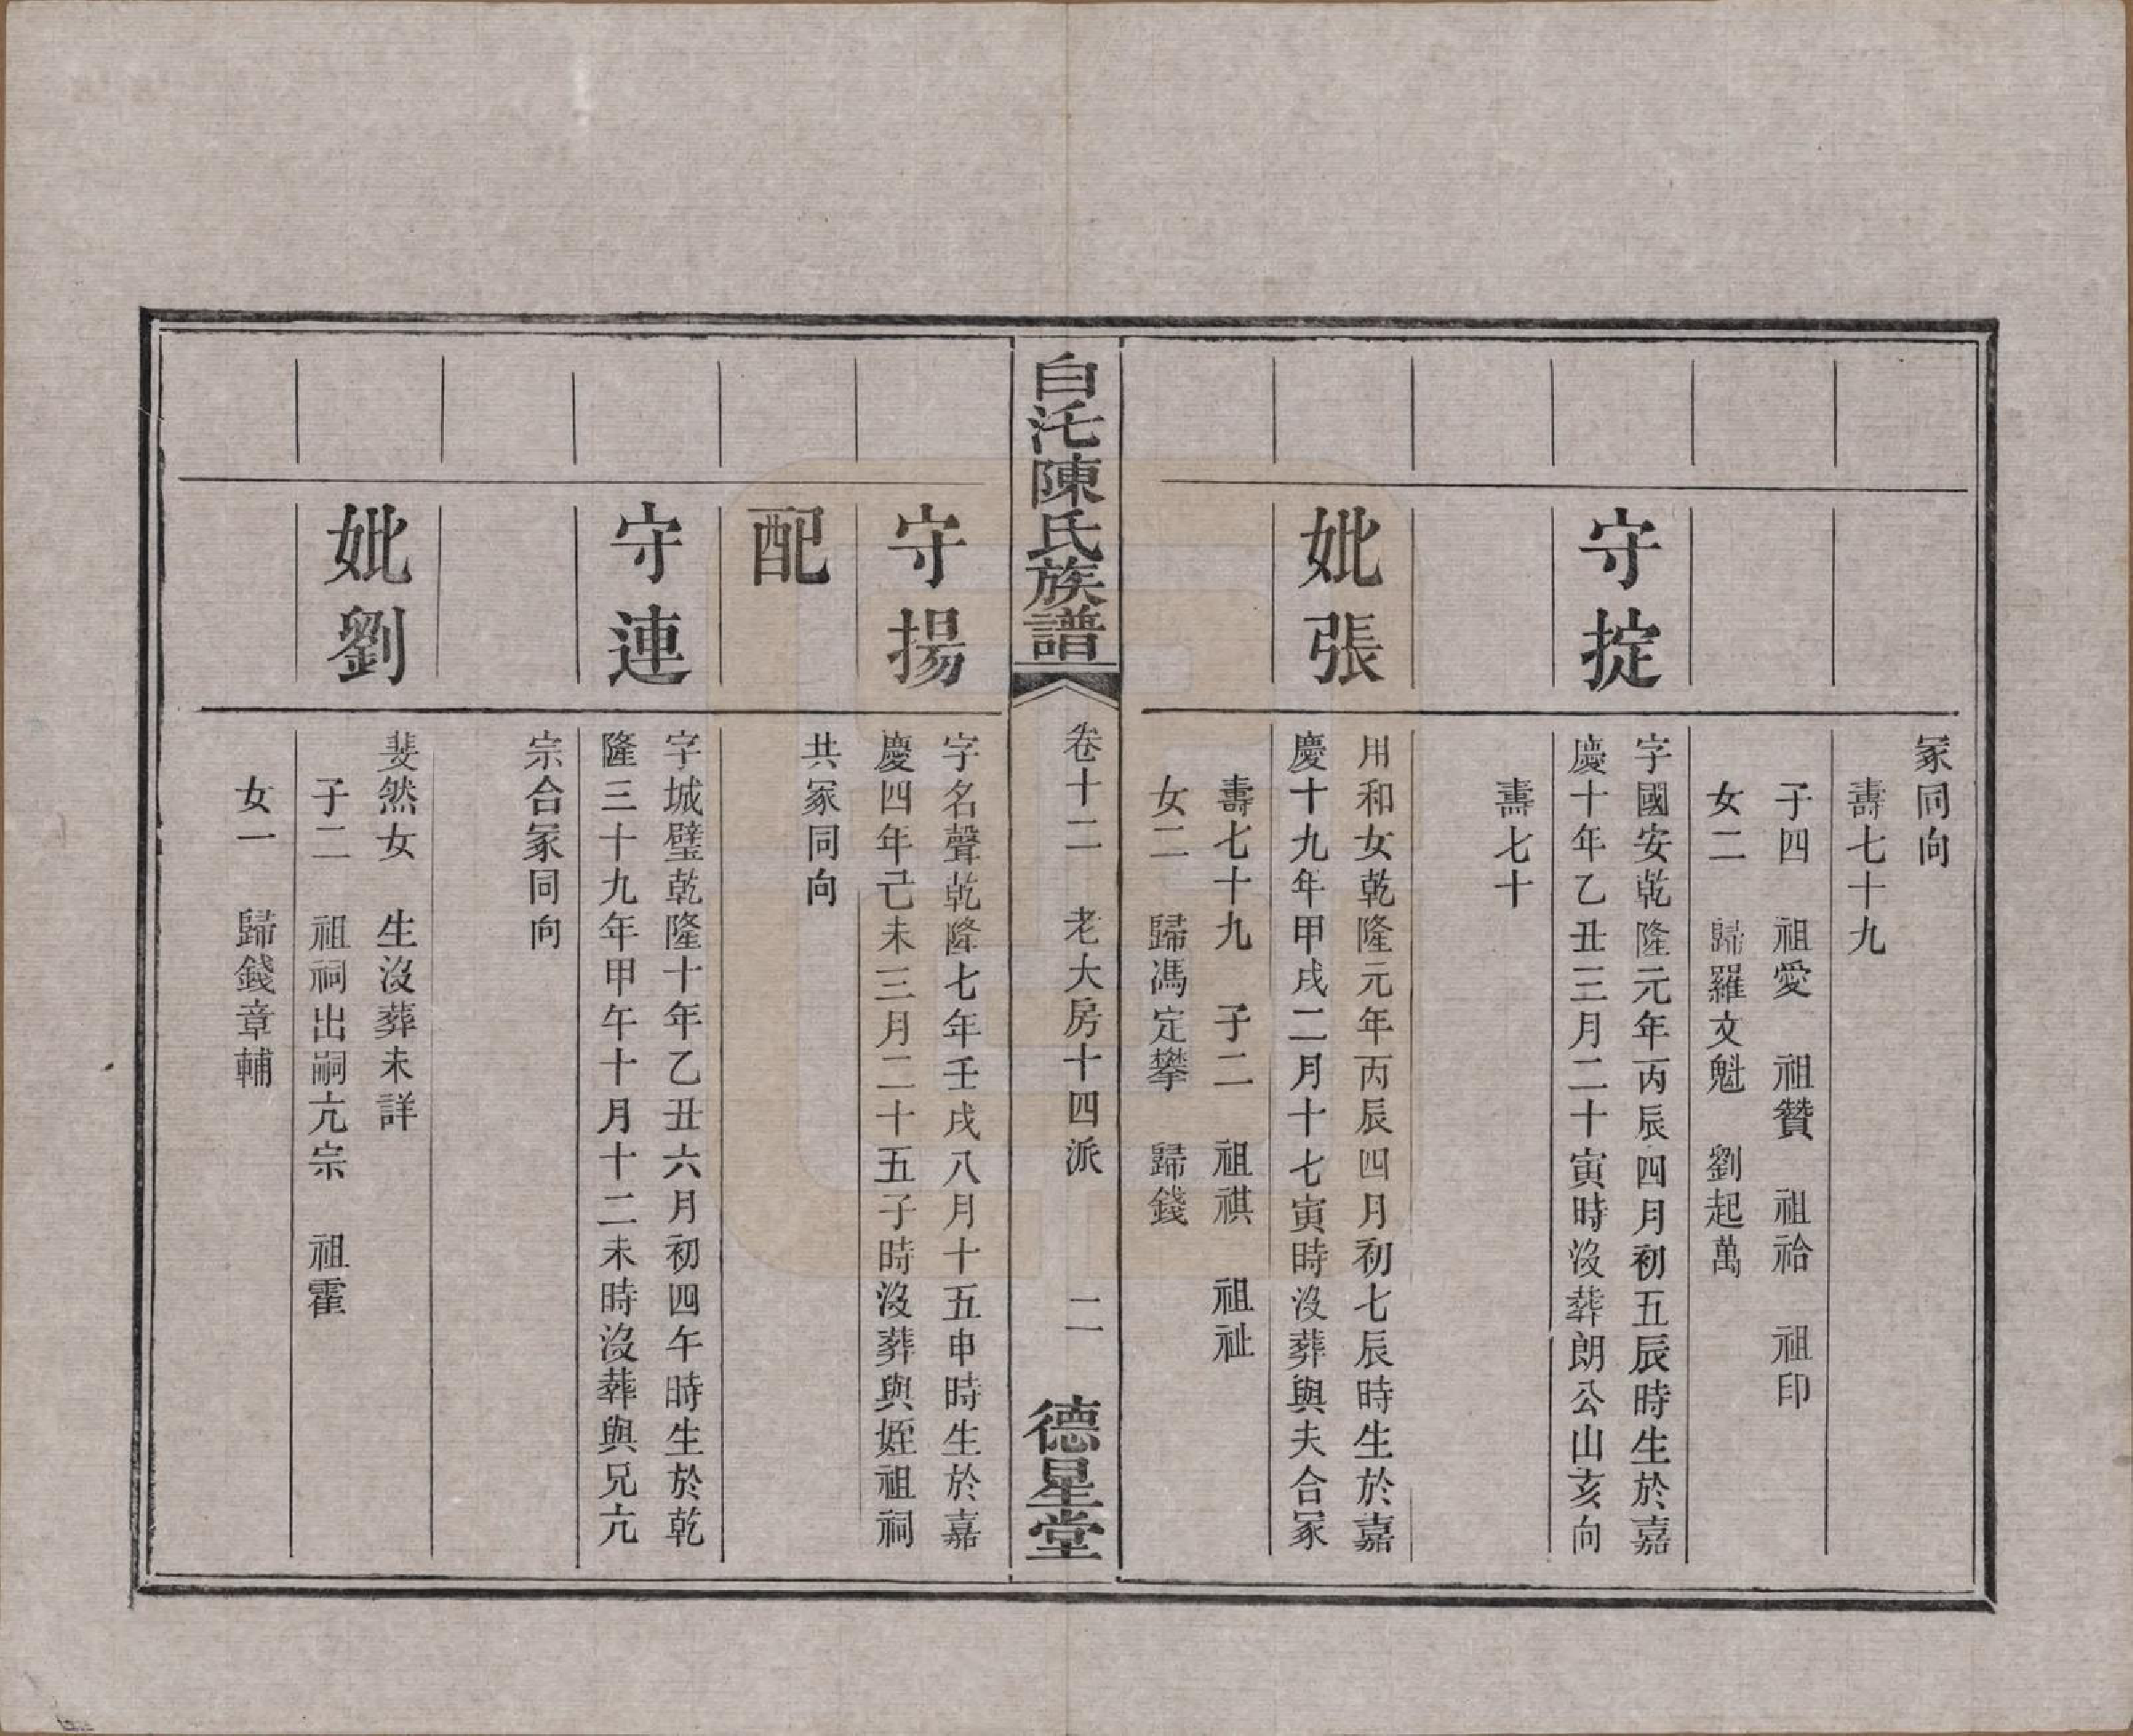 冢同向
壽七十九
子四 祖愛 祖贊 祖祫 祖印
女二 歸羅文魁 劉起萬
守掟
字國安乾隆元年丙辰四月初五辰時生於嘉
慶十年乙丑三月二十寅時沒葬朗公山亥向
壽七十
妣張
用和女乾隆元年丙辰四月初七辰時生於嘉
慶十九年甲戌二月十七寅時沒葬與夫合冢
壽七十九 子二 祖祺 祖祉
女二 歸馮定攀 歸錢
白沋陳氏族譜
卷十二 老大房十四派 二
德星堂
守揚
字名聲乾隆七年壬戌八月十五申時生於嘉
慶四年己未三月二十五子時沒葬與姪祖祠
共冢同向
配
守連
字城璧乾隆十年乙丑六月初四午時生於乾
隆三十九年甲午十月十二未時沒葬與兄亢
宗合冢同向
妣劉
斐然女 生沒葬未詳
子二 祖祠出嗣亢宗 祖霍
女一 歸錢章輔